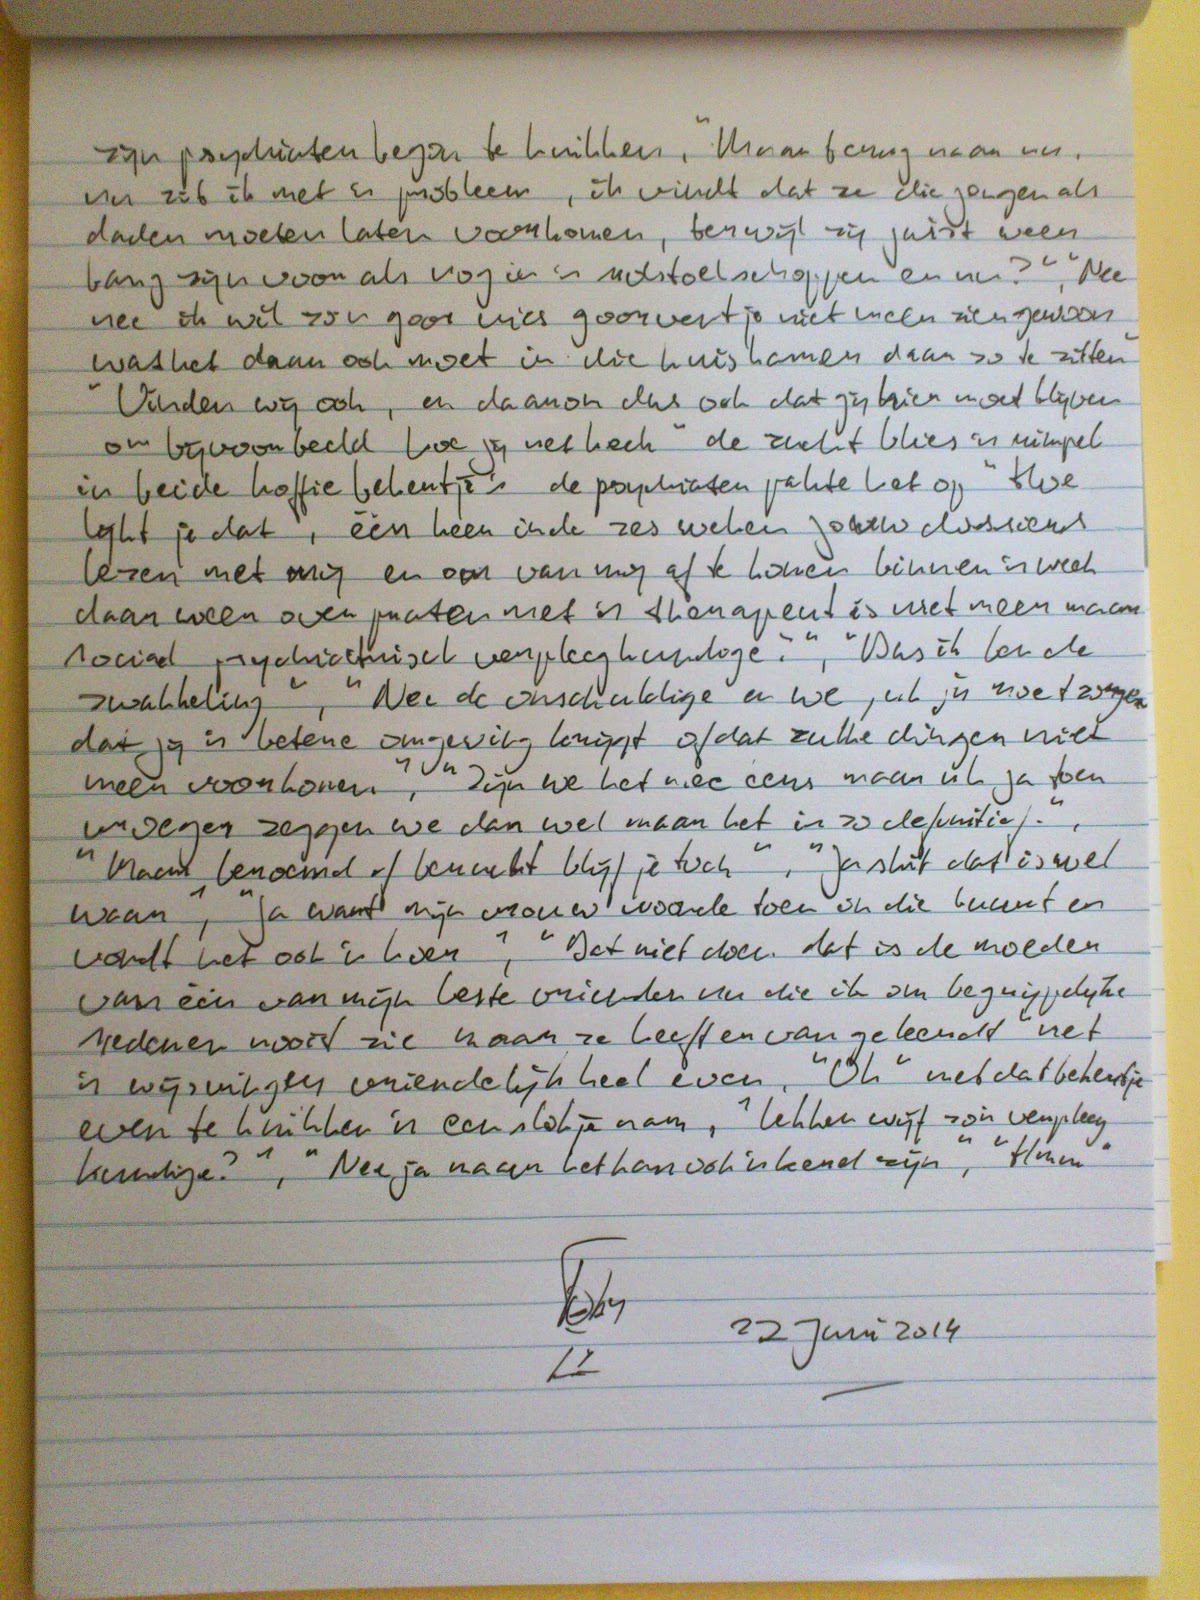 zijn psychiater begon te knikken, "Maar terug naar nu.
nu zit ik met 'n probleem, ik vindt dat ze die jongen als
dader moeten laten voorkomen, terwijl zij juist weer
bang zijn voor als nog ie 'n rotstoel schoppen en nu?", "Nee
nee ik wil zo'n goor vies goorvent je niet meer zien gewoon
washet daar ook moet in die huiskamer daar zo te zitten"
"Vinden wij ook, en daarom dus ook dat jij hier moet blijven
om bijvoorbeeld hoe jij net keek" de zucht blies 'n rimpel
in beide koffie bekertje's de psychiater pakte het op "Hoe
lijkt je dat, één keer in de zes weken jouw dossiers
lezen met mij en om van mij af te komen binnen 'n week
daar weer over praten met 'n therapeut is niet meer maar
sociaal psychiatrisch verpleegkundige?", "Dus ik ben de
zwakkeling", "Nee de onschuldige en we, uh je moet zorgen
dat jij 'n betere omgeving krijgt ofdat zulke dingen niet
meer voorkomen", "Zijn we het nee eens maar uh ja toen
zeggen we dan wel maar het is zo definitief.",
"Maar benoemd of berucht blijf je toch", "Ja shit dat is wel
waar", "Ja want mijn vrouw woonde toen in die buurt en
vondt het ook 'n hoer", "Dat niet doen dat is de moeder
van één van mijn beste vrienden nu die ik om begrijpelijke
redenen nooit zie maar ze heeft ervan geleerdt" met
'n wijsvinger vriendelijk heel even, "Oh" met dat bekertje
even te knikken 'n een slokje nam, "lekker wijf zo'n verpleeg
kundige?", "Nee ja maar het kan ook 'n kerel zijn", "Hmm"
22 Juni 2014